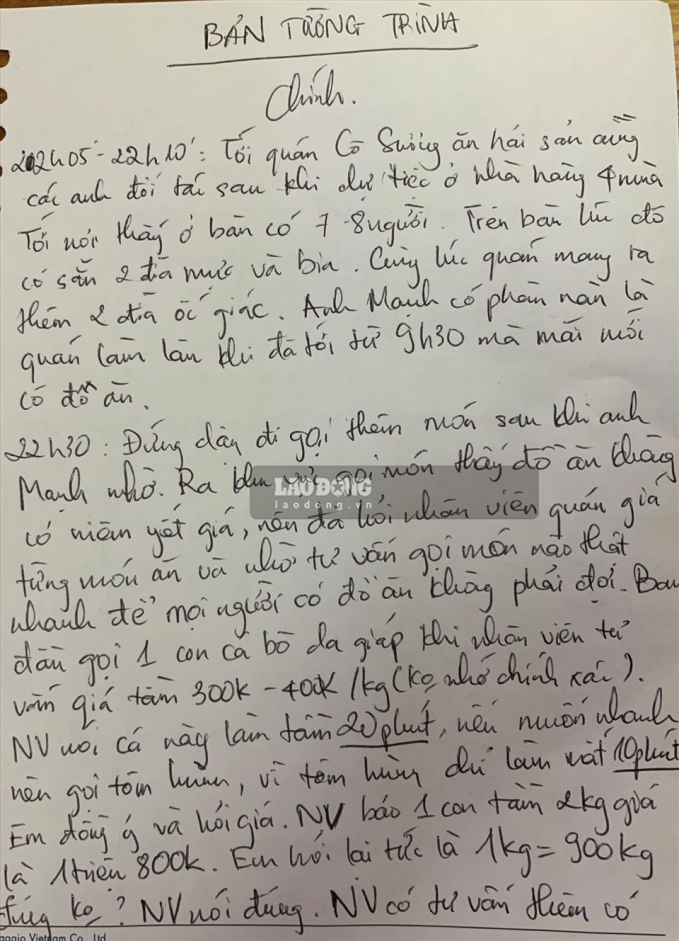 BẢN TƯỜNG TRÌNH
Chính.
22h05 - 22h10: Tới quán Cô Sương ăn hải sản cùng
các anh đối tác sau khi dự tiệc ở nhà hàng 4 mùa
Tới nơi thấy ở bàn có 7-8 người. Trên bàn lúc đó
có sẵn 2 đĩa mực và bia. Cùng lúc quán mang ra
thêm 2 đĩa ốc giác. Anh Mạnh có phàn nàn là
quán làm lâu khi đã tới từ 9h30 mà mãi mới
có đồ ăn.
22h30: Đứng dậy đi gọi thêm món sau khi anh
Mạnh nhờ. Ra khu vực gọi món thấy đồ ăn không
LAO ĐỘNG
laodong.vn
có niêm yết giá, nên đã hỏi nhân viên quán giá
từng món ăn và nhờ tư vấn gọi món nào thật
nhanh để mọi người có đồ ăn không phải đợi. Ban
đầu gọi 1 con cá bò da giáp khi nhân viên tư
vấn giá tầm 300k - 400k /kg (ko nhớ chính xác).
NV nói cá này làm tầm 20 phút, nếu muốn nhanh
nên gọi tôm hùm, vì tôm hùm chỉ làm mất 10 phút
Em đồng ý và hỏi giá. NV báo 1 con tầm 2kg giá
là 1 triệu 800k. Em hỏi lại tức là 1kg = 900kg
đúng ko? NV nói đúng. NV có tư vấn thêm có
Vietnam Co., Ltd